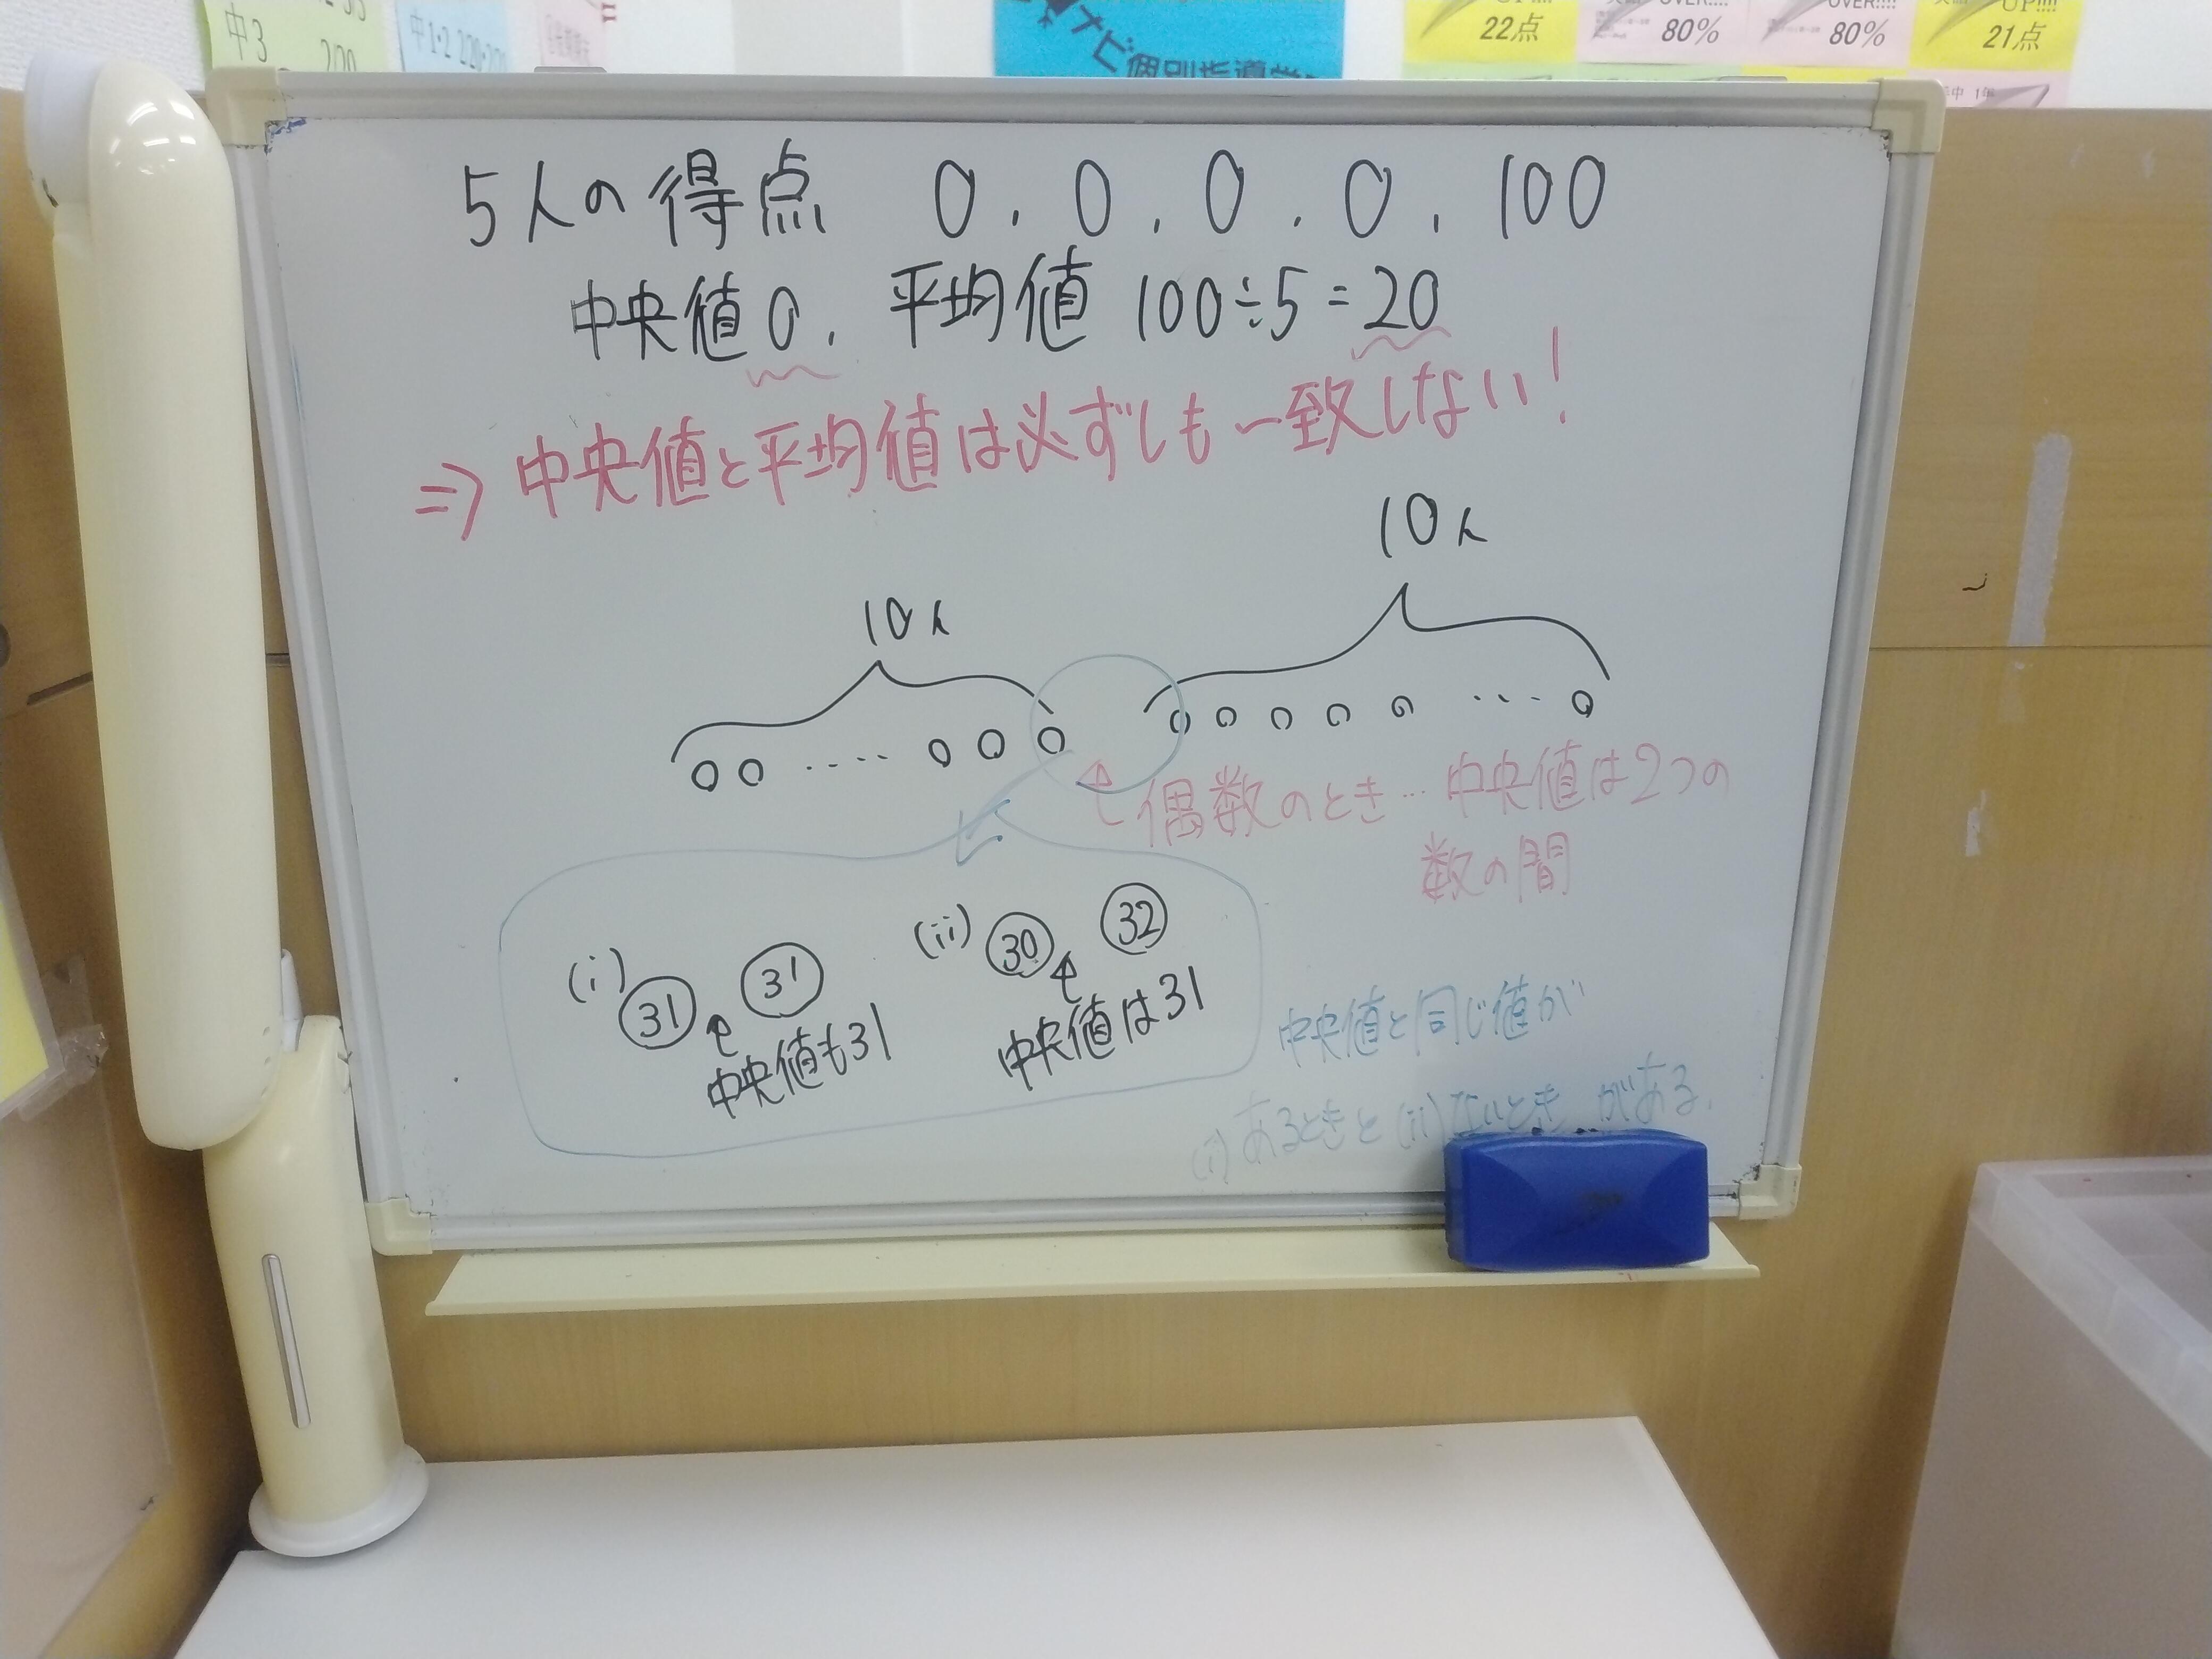 中3
2/20
中1・2 2/20・2/21
ナビ個別指導学
UP!!!!
22点
OVER!!!!
80%
OVER!!!!
80%
UP!!!!
21点
中 1年
5人の得点 0, 0, 0, 0, 100
中央値0, 平均値 100÷5=20
⇒ 中央値と平均値は必ずしも一致しない!
10人
10人
偶数のとき… 中央値は2つの
数の間
(i) 31 31
中央値も31
(ii) 30 32
中央値は31
中央値と同じ値が
(i) あるときと (ii) ないとき がある.